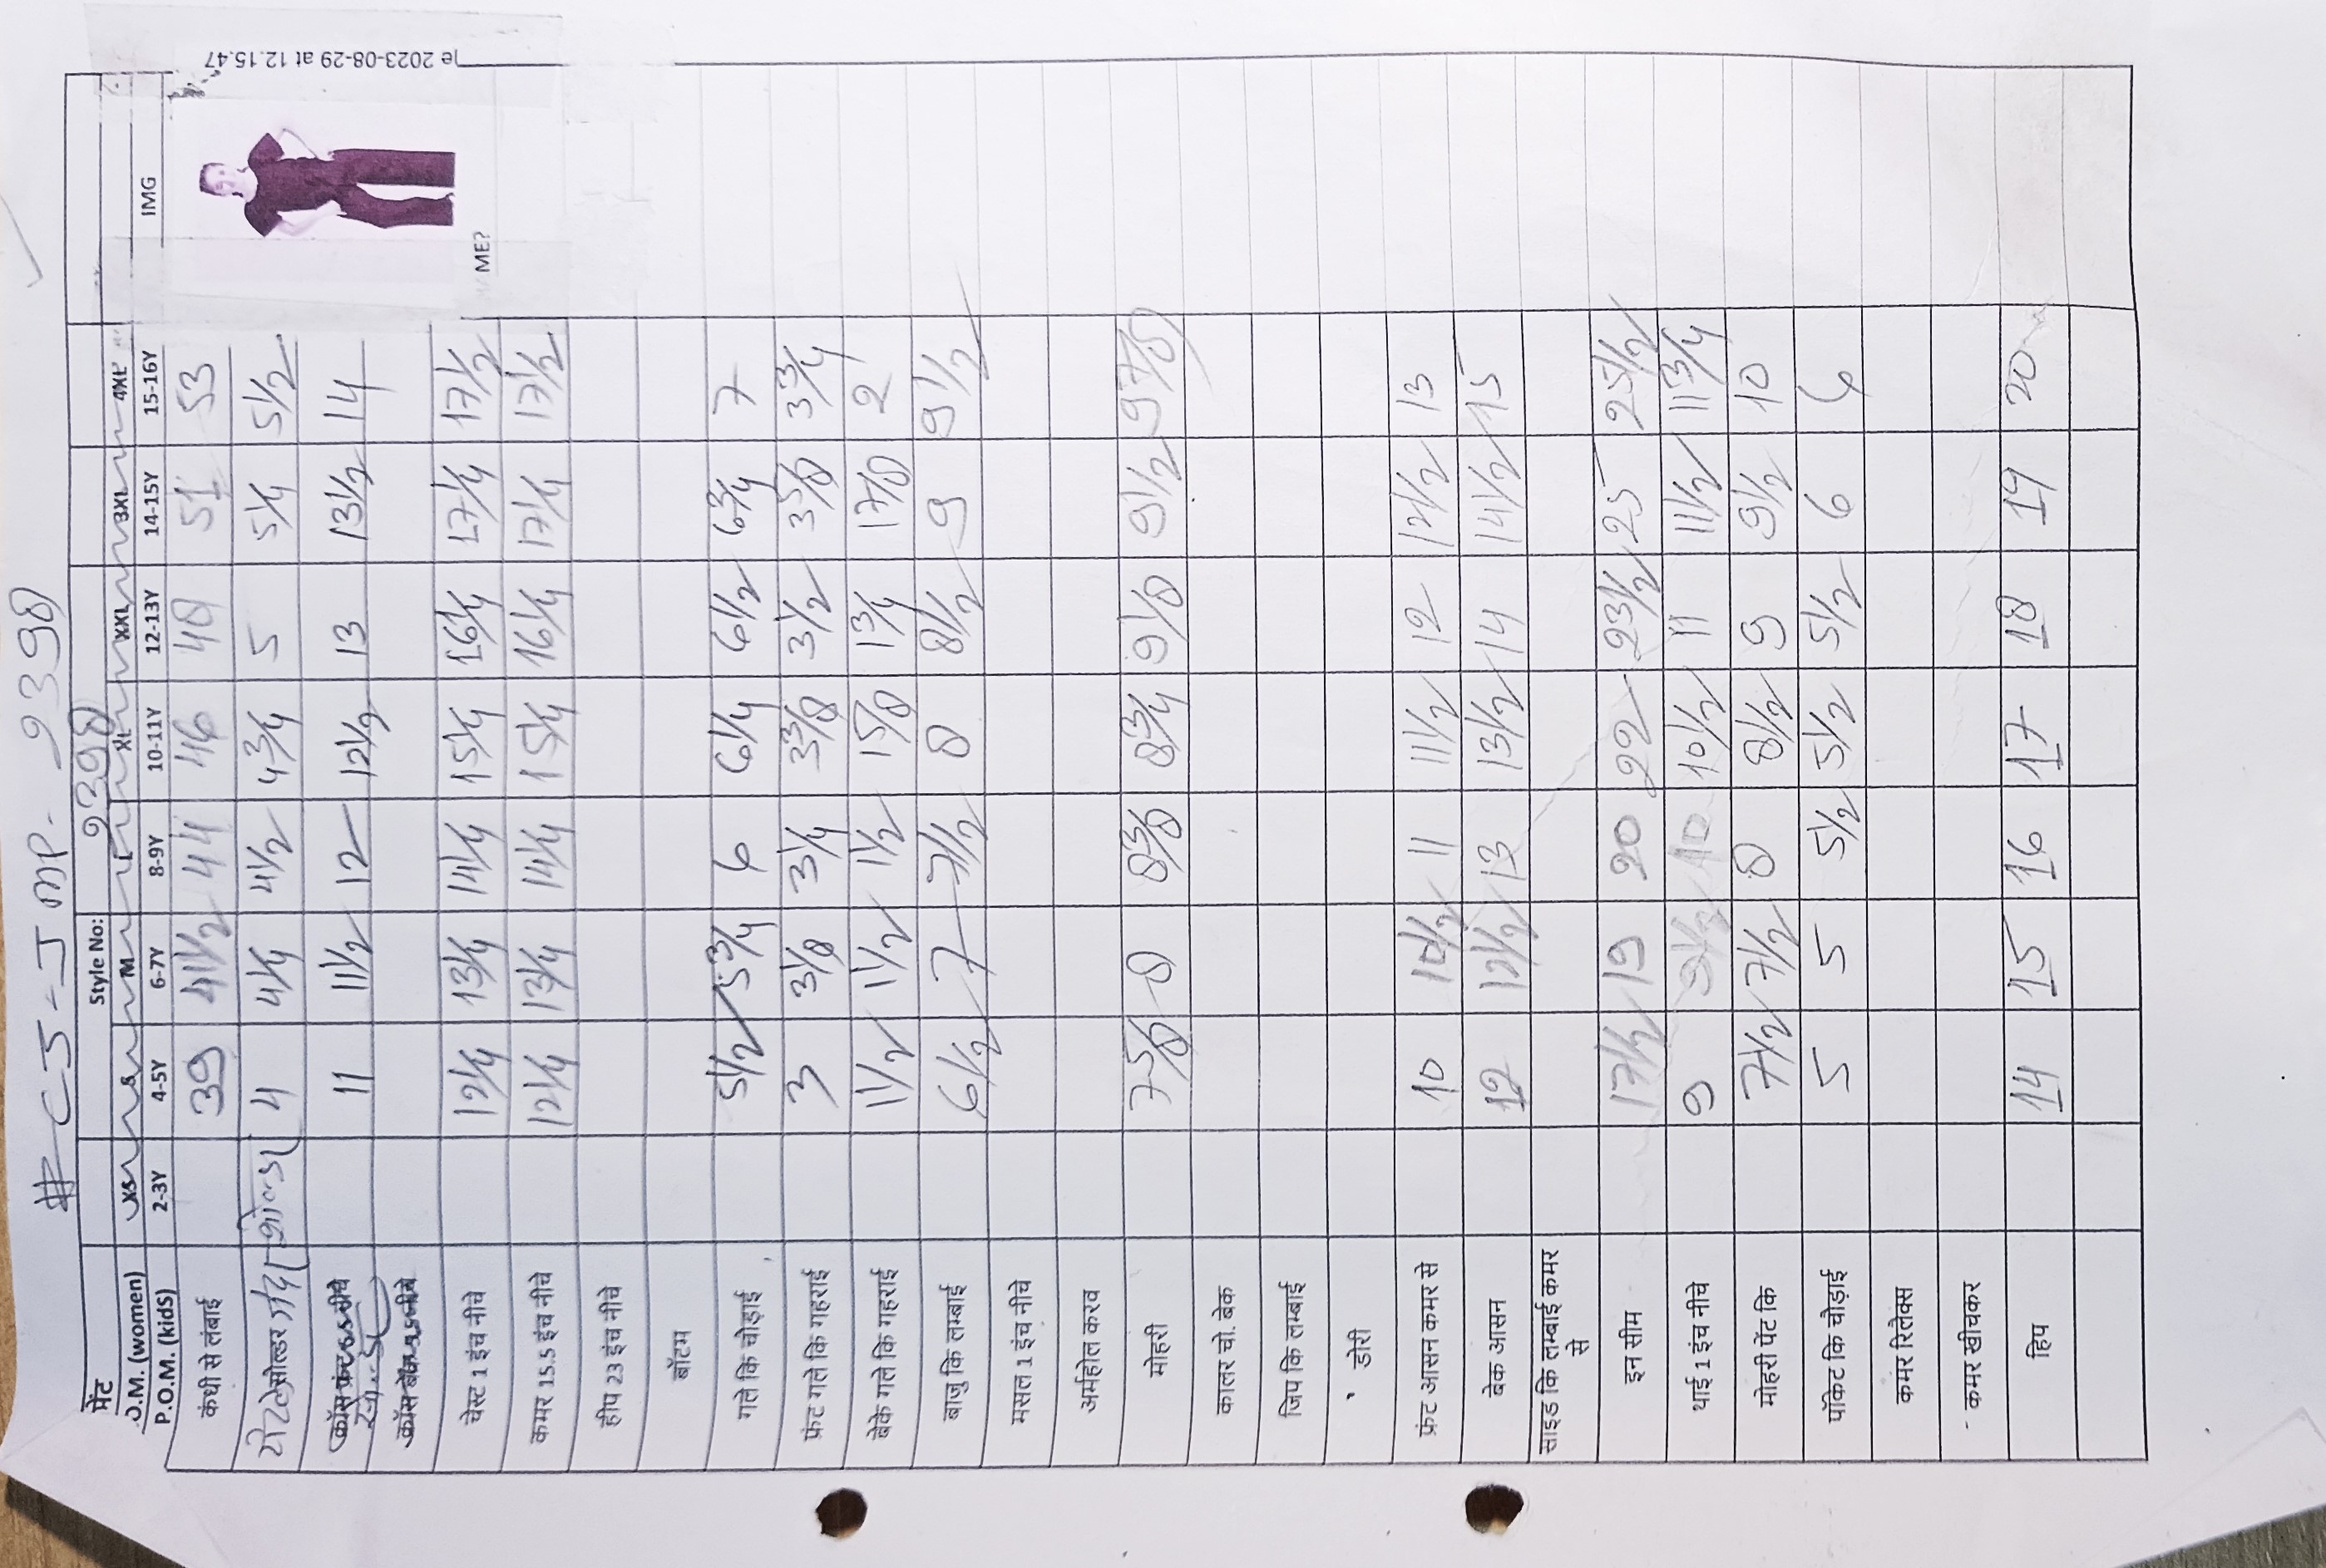 # CS-JMP-9398
Style No: 9398
मेंट
.O.M. (women) XS S M L XL XXL 3XL 4XL
P.O.M. (kidS) 2-3Y 4-5Y 6-7Y 8-9Y 10-11Y 12-13Y 14-15Y 15-16Y IMG
e 2023-08-29 at 12.15.47
ME?
कंधी से लंबाई 39 41 1/2 44 46 48 51 53
सोल्डर 4 4 1/4 4 1/2 4 3/4 5 5 1/4 5 1/2
क्रॉस फ्रंट नीचे 11 11 1/2 12 12 1/2 13 13 1/2 14
क्रॉस बेक नीचे
चेस्ट 1 इंच नीचे 12 1/4 13 1/4 14 1/4 15 1/4 16 1/4 17 1/4 17 1/2
कमर 15.5 इंच नीचे 12 1/4 13 1/4 14 1/4 15 1/4 16 1/4 17 1/4 17 1/2
हीप 23 इंच नीचे
बॉटम
गले कि चोड़ाई 5 1/2 5 3/4 6 6 1/4 6 1/2 6 3/4 7
फ्रंट गले कि गहराई 3 3 1/8 3 1/4 3 3/8 3 1/2 3 5/8 3 3/4
बेके गले कि गहराई 1 1/2 1 1/2 1 1/2 1 5/8 1 3/4 1 7/8 2
बाजु कि लम्बाई 6 1/2 7 7 1/2 8 8 1/2 9 9 1/2
मसल 1 इंच नीचे
अर्महोल करव
मोहरी 7 5/8 8 8 3/8 8 3/4 9 1/8 9 1/2 9 7/8
कालर चो. बेक
जिप कि लम्बाई
डोरी
फ्रंट आसन कमर से 10 10 1/2 11 11 1/2 12 12 1/2 13
बेक आसन 12 12 1/2 13 13 1/2 14 14 1/2 15
साइड कि लम्बाई कमर
से
इन सीम 17 1/2 19 20 22 23 1/2 25 25 1/2
थाई 1 इंच नीचे 9 9 1/2 10 10 1/2 11 11 1/2 11 3/4
मोहरी पेंट कि 7 1/2 7 1/2 8 8 1/2 9 9 1/2 10
पॉकेट कि चौड़ाई 5 5 5 1/2 5 1/2 5 1/2 6 6
कमर रिलैक्स
कमर खीचकर
हिप 14 15 16 17 18 19 20